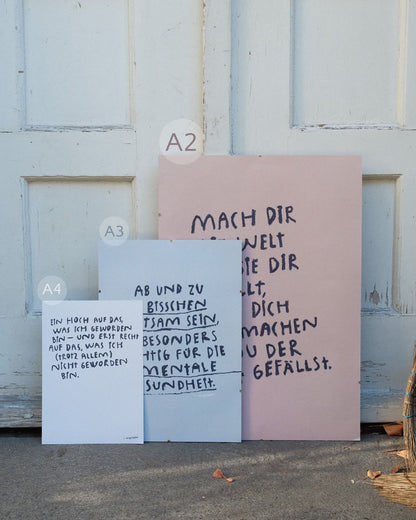 A2
MACH DIR
WELT
SIE DIR
DICH
MACHEN
DU DER
GEFÄLLST.
A3
AB UND ZU
BISSCHEN
TSAM SEIN,
BESONDERS
HTIG FÜR DIE
MENTALE
SUNDHEIT.
A4
EIN HOCH AUF DAS,
WAS ICH GEWORDEN
BIN – UND ERST RECHT
AUF DAS, WAS ICH
(TROTZ ALLEM)
NICHT GEWORDEN
BIN.